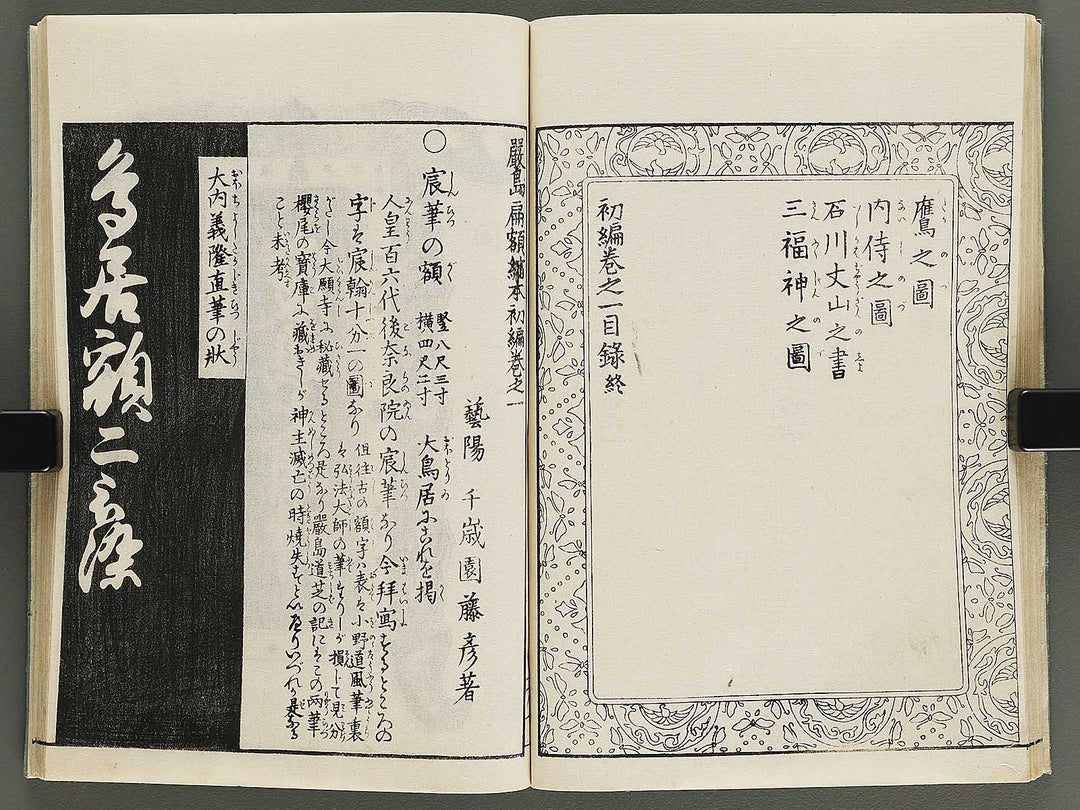 鷹之圖
内侍之圖
石川丈山之書
三福神之圖
初編卷之一目錄終
嚴島扁額縮本初編卷之一
藝陽 千歳園藤彦著
○宸筆の額 竪八尺三寸 横四尺二寸 大鳥居にこれを掲く
人皇百六代後奈良院の宸筆なり今拜寫するところの
字は宸翰十分一の圖なり 但往古の額字ハ表は小野道風筆裏
は弘法大師の筆なりしが損じて見分
がたし今大願寺に秘藏せるところ是なり嚴島道芝の記にはこの兩筆
櫻尾の寶庫に藏おきしが神主滅亡の時燒失すといへりいづれか是なる
こと未考
大内義隆直筆の狀
鳥居額二